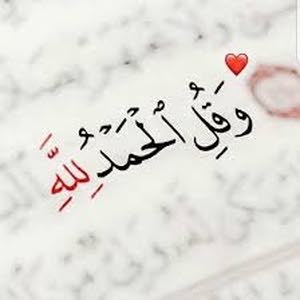 وَقُلِ ٱلْحَمْدُ لِلَّهِ